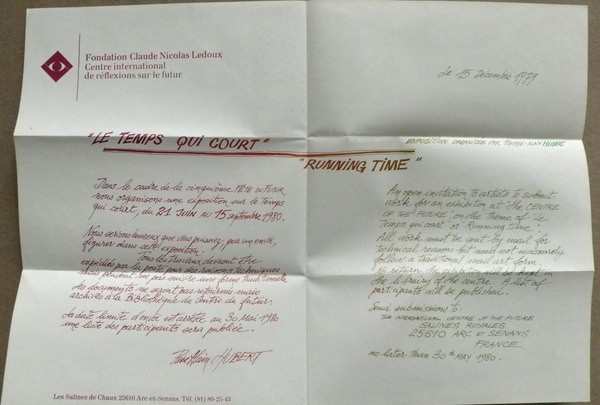 Fondation Claude Nicolas Ledoux
Centre international
de réflexions sur le futur
Le 15 Décembre 1979.
"LE TEMPS QUI COURT"
EXPOSITION ORGANISÉE PAR PIERRE-ALAIN HUBERT
"RUNNING TIME"
Dans le cadre de la cinquième FÊTE DU FUTUR
nous organisons une exposition sur le temps
qui court, du 21 JUIN au 15 septembre 1980.
Nous serions heureux que vous puissiez, par un envoi,
figurer dans cette exposition.
Tous les travaux devront être
expédiés par la poste pour des raisons techniques
mais peuvent ne pas suivre une forme traditionnelle
Les documents ne seront pas retournés mais
archivés à la Bibliothèque du Centre du futur.
La date limite d'envoi est arrêtée au 30 Mai 1980
une liste des participants sera publiée.
Pierre Alain HUBERT
An open invitation to artists to submit
work for an exhibition at THE CENTRE
OF THE FUTURE, on the theme of Le
Temps qui court or Running time.
All work must be sent by mail for
technical reasons but need not necessarily
follow a traditional mail art form.
No return, the exhibition will be kept in
the library of the centre. A list of
participants will be published.
Send submissions to:
THE INTERNATIONAL CENTRE OF THE FUTURE
SALINES ROYALES
25610 ARC ET SENANS
FRANCE.
no later than 30th MAY 1980.
Les Salines de Chaux 25610 Arc-et-Senans. Tél. (81) 80-25-43